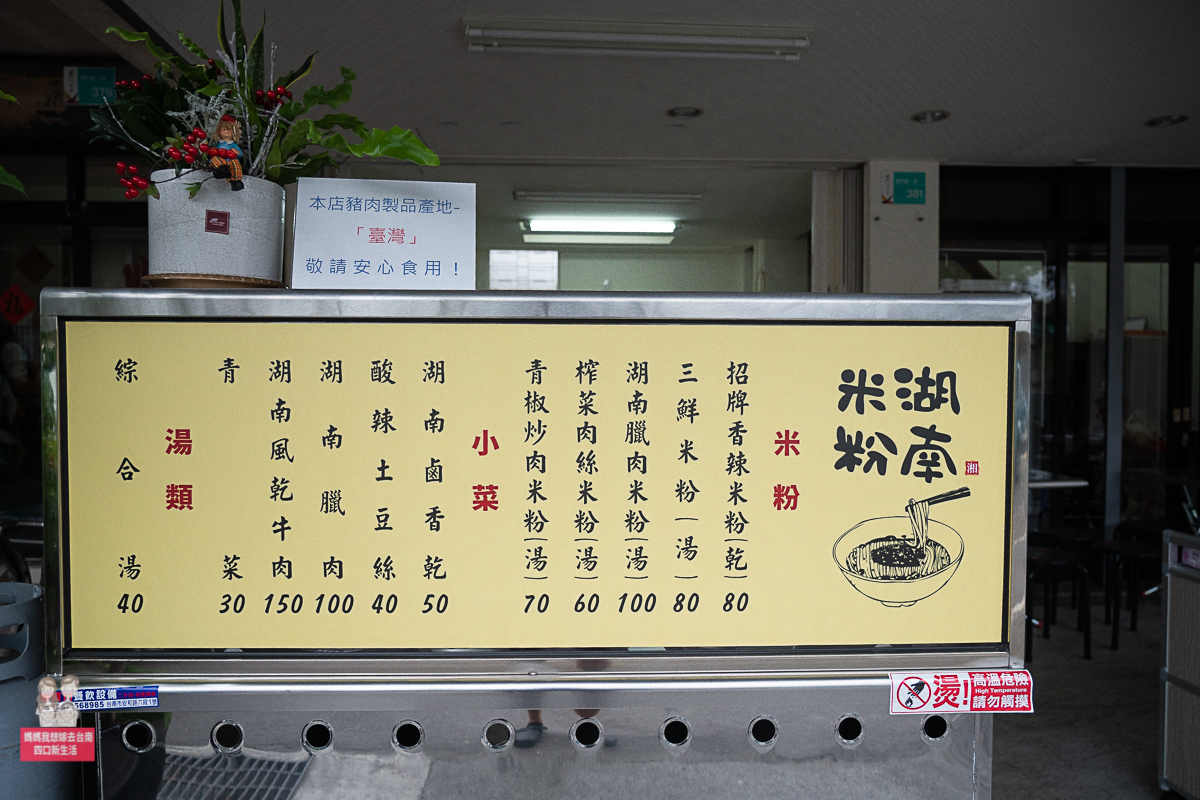 379
381
本店豬肉製品產地-
「臺灣」
敬請安心食用！
湖南
米粉
湘
米粉
招牌香辣米粉(乾) 80
三鮮米粉(湯) 80
湖南臘肉米粉(湯) 100
榨菜肉絲米粉(湯) 60
青椒炒肉米粉(湯) 70
小菜
湖南鹵香乾 50
酸辣土豆絲 40
湖南臘肉 100
湖南風乾牛肉 150
青菜 30
湯類
綜合湯 40
餐飲設備
568985 台南市安和路六段1號
燙!
高溫危險
High Temperature
請勿觸摸
媽媽我想嫁去台南
四口新生活